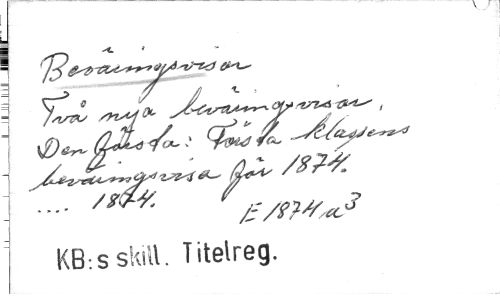 Beväringsvisor
Två nya beväringsvisor.
Den första: Första klassens
beväringsvisa för 1874.
.... 1874.
E 1874 a³
KB:s skill. Titelreg.